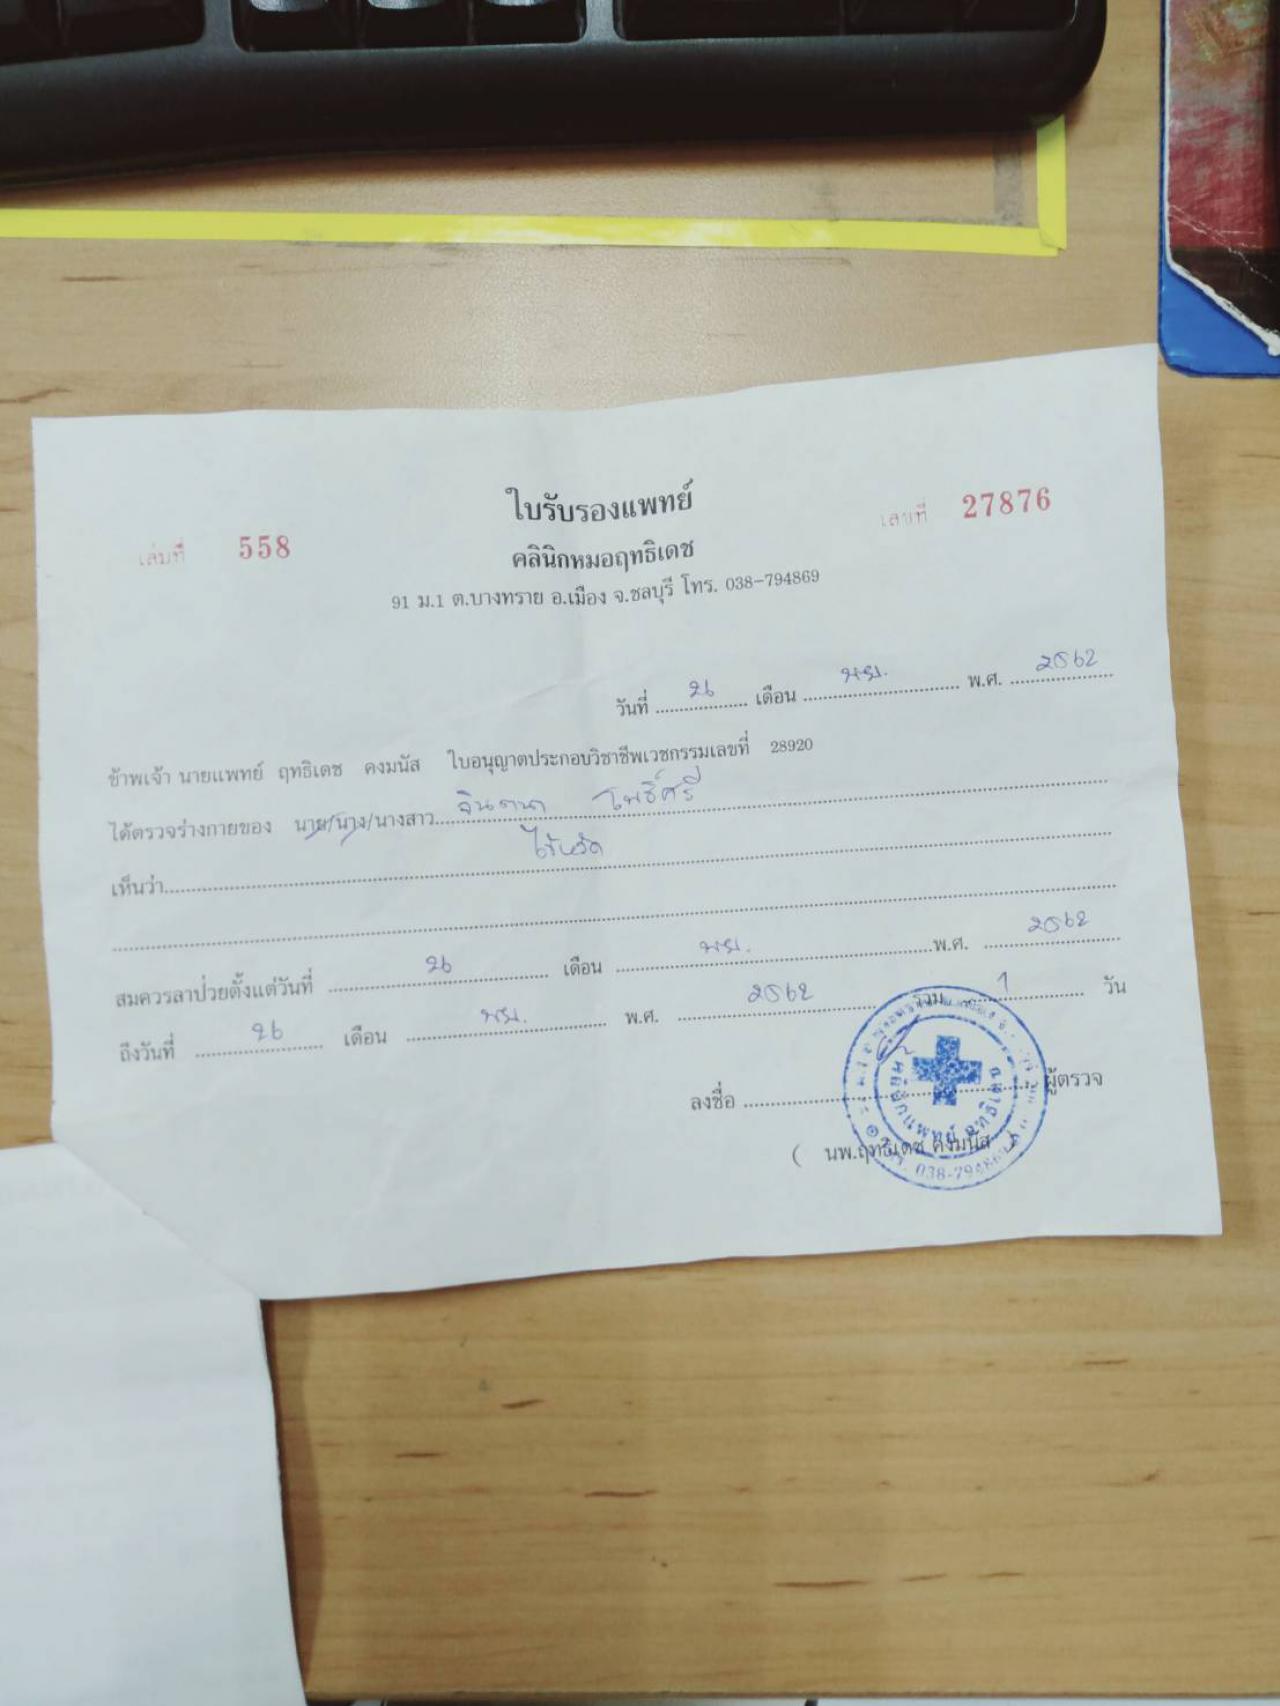 ใบรับรองแพทย์
เล่มที่ 558 เลขที่ 27876
คลินิกหมอฤทธิเดช
91 ม.1 ต.บางทราย อ.เมือง จ.ชลบุรี โทร. 038-794869
วันที่ 26 เดือน พย. พ.ศ. 2562
ข้าพเจ้า นายแพทย์ ฤทธิเดช คงมนัส ใบอนุญาตประกอบวิชาชีพเวชกรรมเลขที่ 28920
ได้ตรวจร่างกายของ นาย/นาง/นางสาว จินตนา โพธิ์ศรี
เห็นว่า ไข้หวัด
สมควรลาป่วยตั้งแต่วันที่ 26 เดือน พย. พ.ศ. 2562
ถึงวันที่ 26 เดือน พย. พ.ศ. 2562 รวม 1 วัน
ลงชื่อ ผู้ตรวจ
( นพ.ฤทธิเดช คงมนัส )